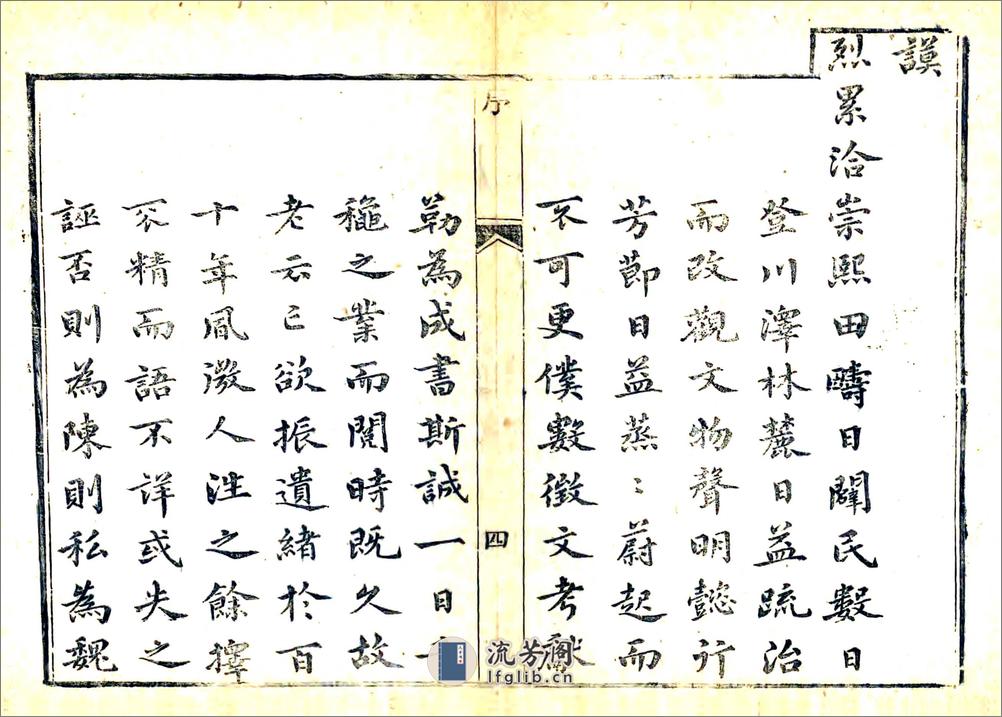 謨
烈累洽崇熙田疇日闢民數日
登川澤林麓日益疏治
而改觀文物聲明懿行
芳節日益蒸〻蔚起而
不可更僕數徵文考獻
序
四
勒為成書斯誠一日千
穐之業而閱時既久故
老云亡欲振遺緒於百
十年風微人往之餘擇
不精而語不詳或失之
誣否則為陳則私為魏
流芳閣
lfglib.cn